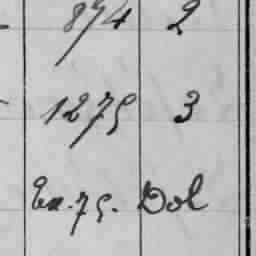 874 2
1275 3
Ex. 75. Dol